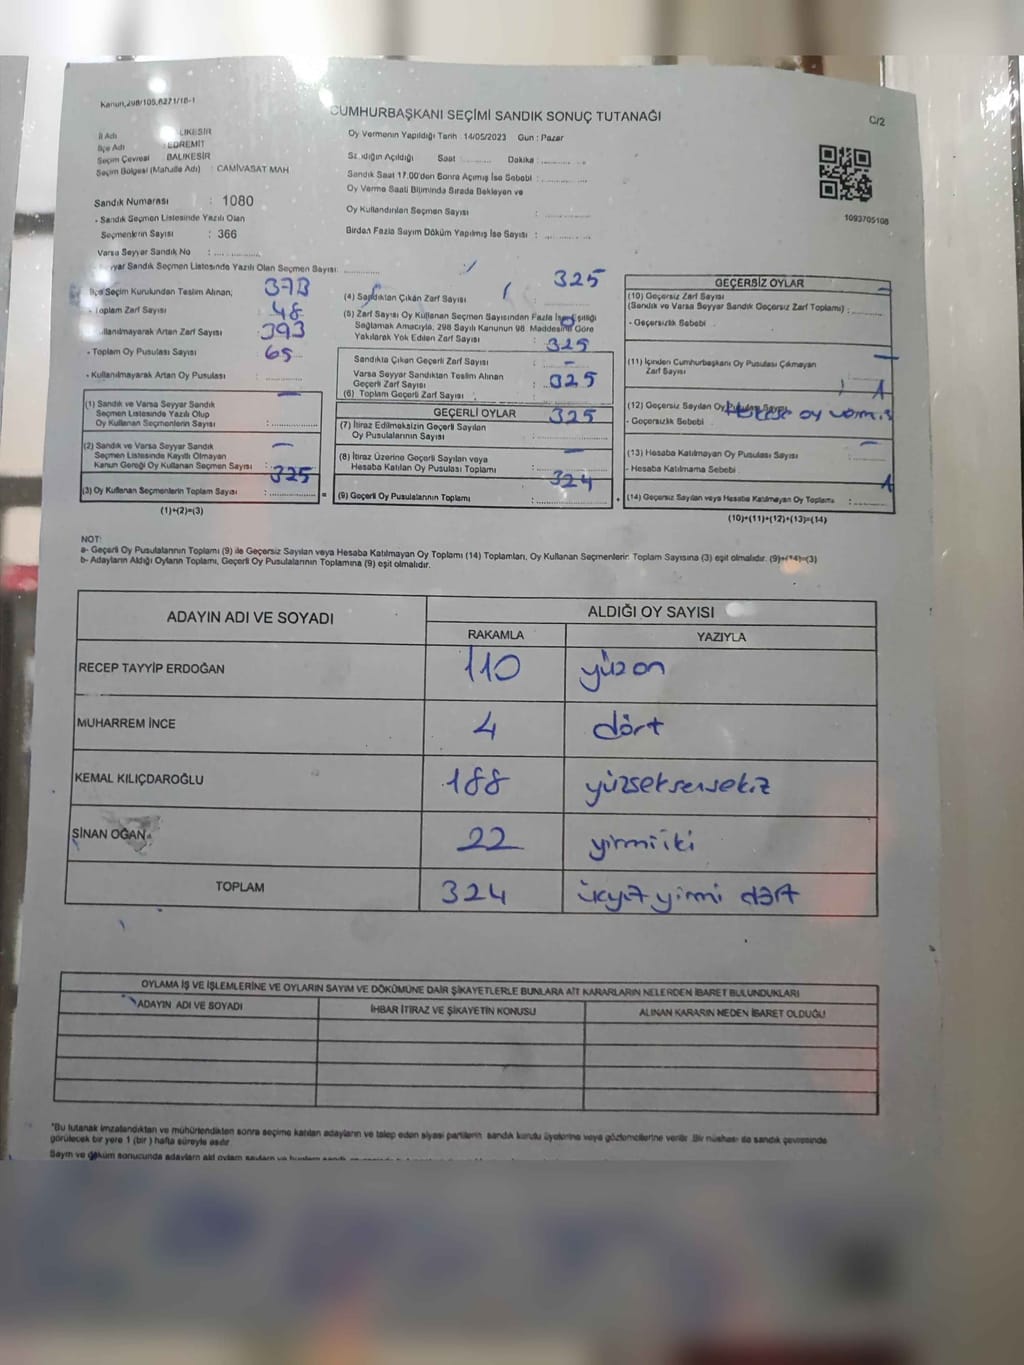 Kanun,298/105,6271/18-1
CUMHURBAŞKANI SEÇİMİ SANDIK SONUÇ TUTANAĞI
C/2
İl Adı LIKESİR
İlçe Adı : EDREMİT
Seçim Çevresi BALIKESİR
Seçim Bölgesi (Mahalle Adı) : CAMİVASAT MAH
Sandık Numarası : 1080
- Sandık Seçmen Listesinde Yazılı Olan
Seçmenlerin Sayısı : 366
Varsa Seyyar Sandık No : ..............
Seyyar Sandık Seçmen Listesinde Yazılı Olan Seçmen Sayısı ..............
Oy Vermenin Yapıldığı Tarih 14/05/2023 Gün : Pazar
Sandığın Açıldığı Saat .......... Dakika : ..............
Sandık Saat 17.00'den Sonra Açılmış İse Sebebi : ..............
Oy Verme Saati Bitiminde Sırada Bekleyen ve
Oy Kullandırılan Seçmen Sayısı : ..............
Birden Fazla Sayım Döküm Yapılmış İse Sayısı : ..............
1093705108
İlçe Seçim Kurulundan Teslim Alınan; 373
- Toplam Zarf Sayısı 48
Kullanılmayarak Artan Zarf Sayısı 393
- Toplam Oy Pusulası Sayısı 65
- Kullanılmayarak Artan Oy Pusulası : ..............
(1) Sandık ve Varsa Seyyar Sandık
Seçmen Listesinde Yazılı Olup
Oy Kullanan Seçmenlerin Sayısı : -
(2) Sandık ve Varsa Seyyar Sandık
Seçmen Listesinde Kayıtlı Olmayan
Kanun Gereği Oy Kullanan Seçmen Sayısı : -
325
(3) Oy Kullanan Seçmenlerin Toplam Sayısı : .............. =
(1)+(2)=(3)
325
(4) Sandıktan Çıkan Zarf Sayısı
(5) Zarf Sayısı Oy Kullanan Seçmen Sayısından Fazla İse, Eşitliği
Sağlamak Amacıyla, 298 Sayılı Kanunun 98. Maddesine Göre
Yakılarak Yok Edilen Zarf Sayısı : 325
Sandıkta Çıkan Geçerli Zarf Sayısı -
Varsa Seyyar Sandıktan Teslim Alınan
Geçerli Zarf Sayısı : 325
(6) Toplam Geçerli Zarf Sayısı
GEÇERLİ OYLAR
325
(7) İtiraz Edilmeksizin Geçerli Sayılan
Oy Pusulalarının Sayısı : ..............
(8) İtiraz Üzerine Geçerli Sayılan veya -
Hesaba Katılan Oy Pusulası Toplamı : ..............
324
(9) Geçerli Oy Pusulalarının Toplamı : .............. +
GEÇERSİZ OYLAR
(10) Geçersiz Zarf Sayısı -
(Sandık ve Varsa Seyyar Sandık Geçersiz Zarf Toplamı) : ..........
- Geçersizlik Sebebi
(11) İçinden Cumhurbaşkanı Oy Pusulası Çıkmayan -
Zarf Sayısı
(12) Geçersiz Sayılan Oy Pusulası Sayısı oy vermiş
- Geçersizlik Sebebi
(13) Hesaba Katılmayan Oy Pusulası Sayısı -
- Hesaba Katılmama Sebebi
(14) Geçersiz Sayılan veya Hesaba Katılmayan Oy Toplamı : ..........
(10)+(11)+(12)+(13)=(14)
NOT:
a- Geçerli Oy Pusulalarının Toplamı (9) ile Geçersiz Sayılan veya Hesaba Katılmayan Oy Toplamı (14) Toplamları, Oy Kullanan Seçmenlerin Toplam Sayısına (3) eşit olmalıdır. (9)+(14)=(3)
b- Adayların Aldığı Oyların Toplamı, Geçerli Oy Pusulalarının Toplamına (9) eşit olmalıdır.
ADAYIN ADI VE SOYADI ALDIĞI OY SAYISI
RAKAMLA YAZIYLA
RECEP TAYYİP ERDOĞAN 110 yüzon
MUHARREM İNCE 4 dört
KEMAL KILIÇDAROĞLU 188 yüzseksensekiz
SİNAN OĞAN 22 yirmiiki
TOPLAM 324 üçyüz yirmi dört
OYLAMA İŞ VE İŞLEMLERİNE VE OYLARIN SAYIM VE DÖKÜMÜNE DAİR ŞİKAYETLERLE BUNLARA AİT KARARLARIN NELERDEN İBARET BULUNDUKLARI
ADAYIN ADI VE SOYADI İHBAR İTİRAZ VE ŞİKAYETİN KONUSU ALINAN KARARIN NEDEN İBARET OLDUĞU
*Bu tutanak imzalandıktan ve mühürlendikten sonra seçime katılan adayların ve talep eden siyasi partilerin sandık kurulu üyelerine veya gözlemcilerine verilir. Bir nüshası da sandık çevresinde
görülecek bir yere 1 (bir ) hafta süreyle asılır